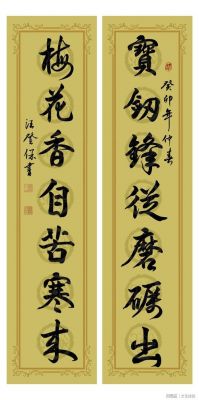 寶劒鋒從磨礪出
癸卯年仲春
梅花香自苦寒來
汪登保書